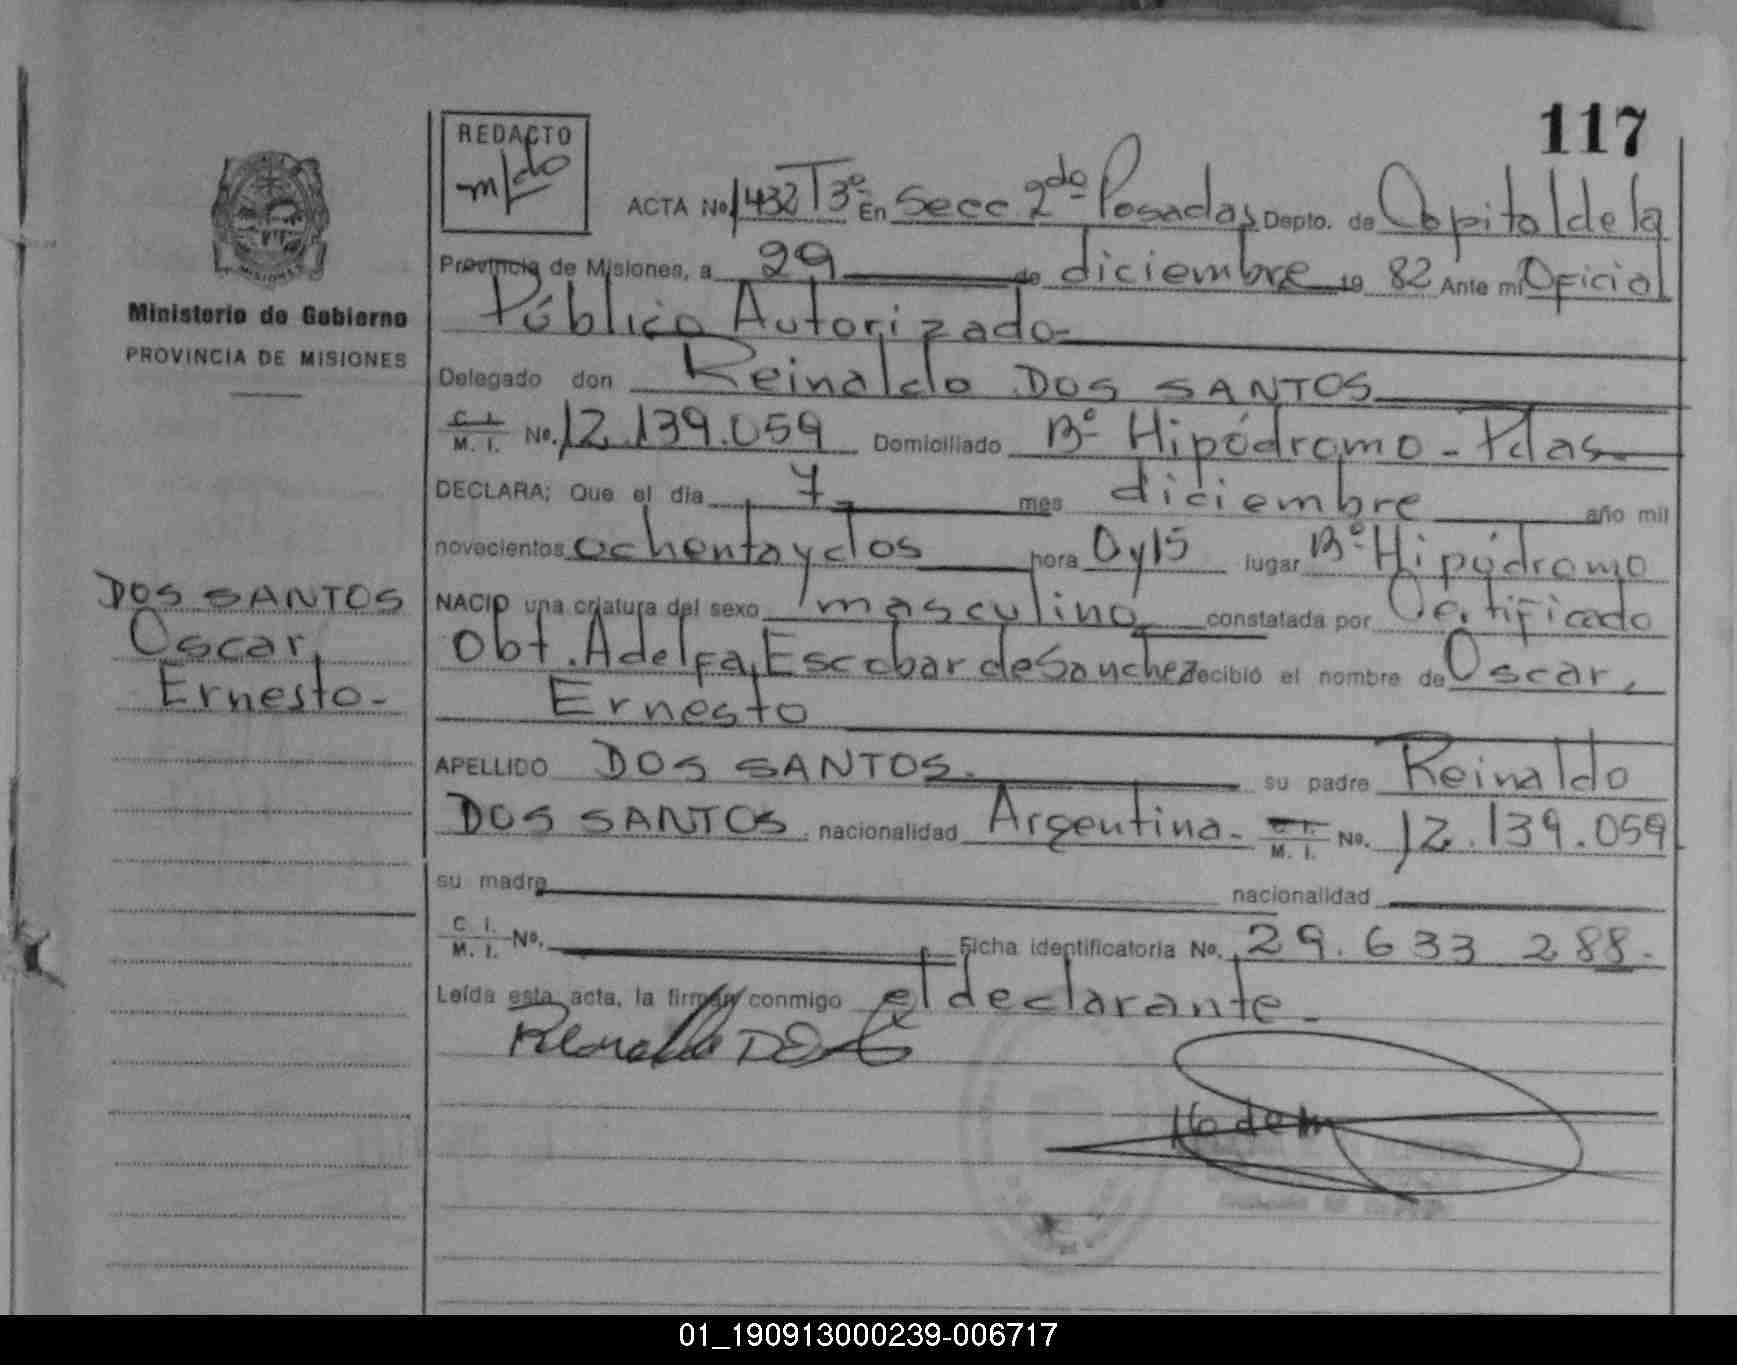 117
REDACTO
ACTA No 1432 T 3º En Secc 2da Posadas Depto. de Capital de la
Provincia de Misiones, a 29 de diciembre 19 82 Ante mi Oficial
Público Autorizado-
Ministerio de Gobierno
PROVINCIA DE MISIONES
Delegado don Reinaldo DOS SANTOS
C. I. M. I. No. 12.139.059 Domiciliado Bº Hipódromo - Pdas
DECLARA; Que el día 7 mes diciembre año mil
novecientos ochenta y dos hora 0 y 15 lugar Bº Hipódromo
NACIO una criatura del sexo masculino constatada por Certificado
Obt. Adelfa Escobar de Sanchez recibió el nombre de Oscar,
Ernesto
DOS SANTOS
Oscar,
Ernesto-
APELLIDO DOS SANTOS. su padre Reinaldo
DOS SANTOS nacionalidad Argentina- C. I. M. I. No. 12.139.059
su madre nacionalidad
C. I. M. I. No. Ficha identificatoria No. 29.633 288-
Leída esta acta, la firman conmigo el declarante-
01_190913000239-006717